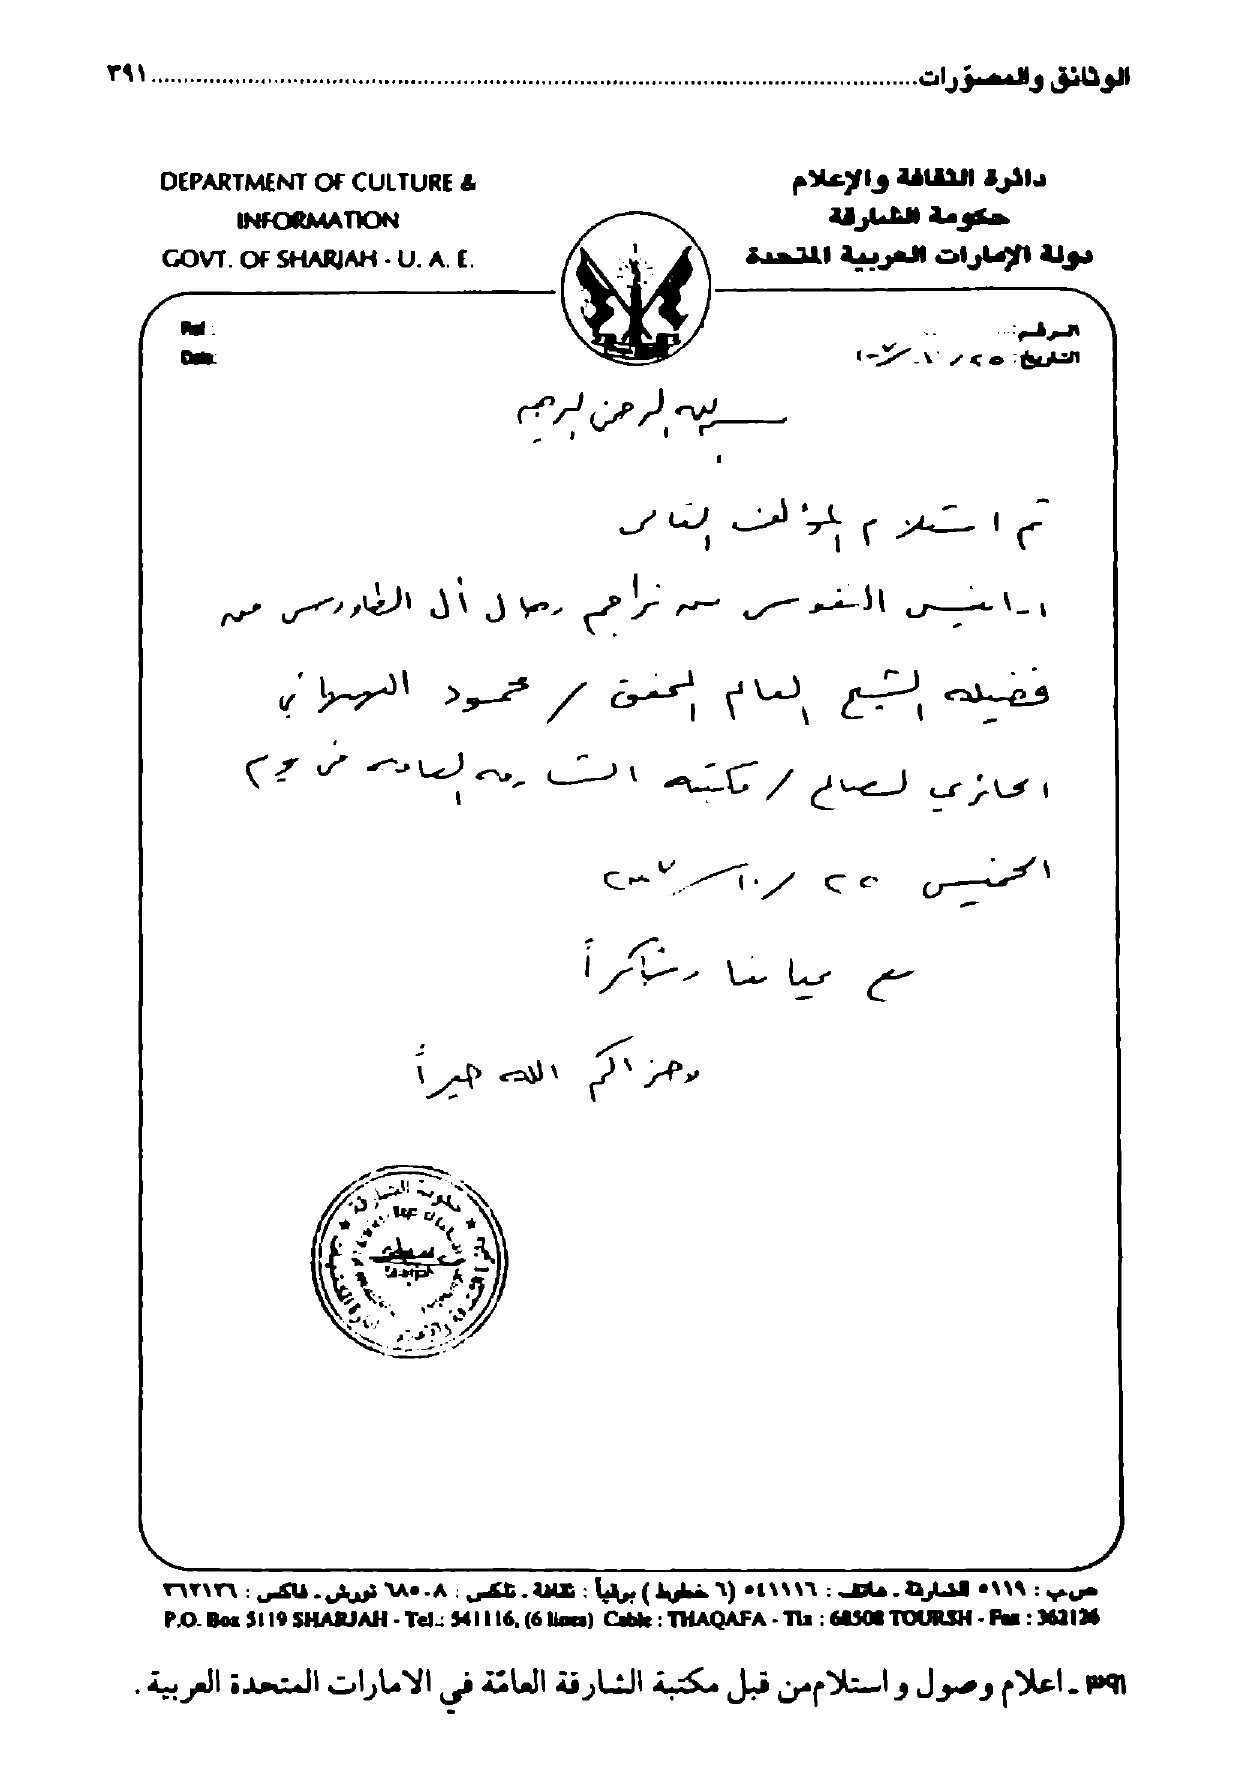 الوثائق والمصوّرات ... ٣٩١
DEPARTMENT OF CULTURE &
INFORMATION
GOVT. OF SHARJAH - U. A. E.
دائرة الثقافة والإعلام
حكومة الشارقة
دولة الإمارات العربية المتحدة
Ref :
Date:
الرقم:
التاريخ: ٢٥/١٠/
بسم الله الرحمن الرحيم
تم استلام المؤلف التالي
١- انيس النفوس من تراجم رجال آل الطاووس من
فضيلة الشيخ العالم المحقق / محمود البهبهاني
الحائري لصالح / مكتبة الشارقة العامة في يوم
الخميس ٢٥ /١٠/
مع تحياتنا وشاكراً
وجزاكم الله خيراً
حكومة الشارقة
ص.ب : ٥١١٩ الشارقة - هاتف : ٥٤١١١٦ (٦ خطوط) برقياً : ثقافة - تلكس : ٦٨٥٠٨ تورش - فاكس : ٣٦٢١٢٦
P.O. Box 5119 SHARJAH - Tel.: 541116, (6 lines) Cable : THAQAFA - Tlx : 68508 TOURSH - Fax : 362126
٣٩١ ـ اعلام وصول واستلام من قبل مكتبة الشارقة العامّة في الامارات المتحدة العربية .